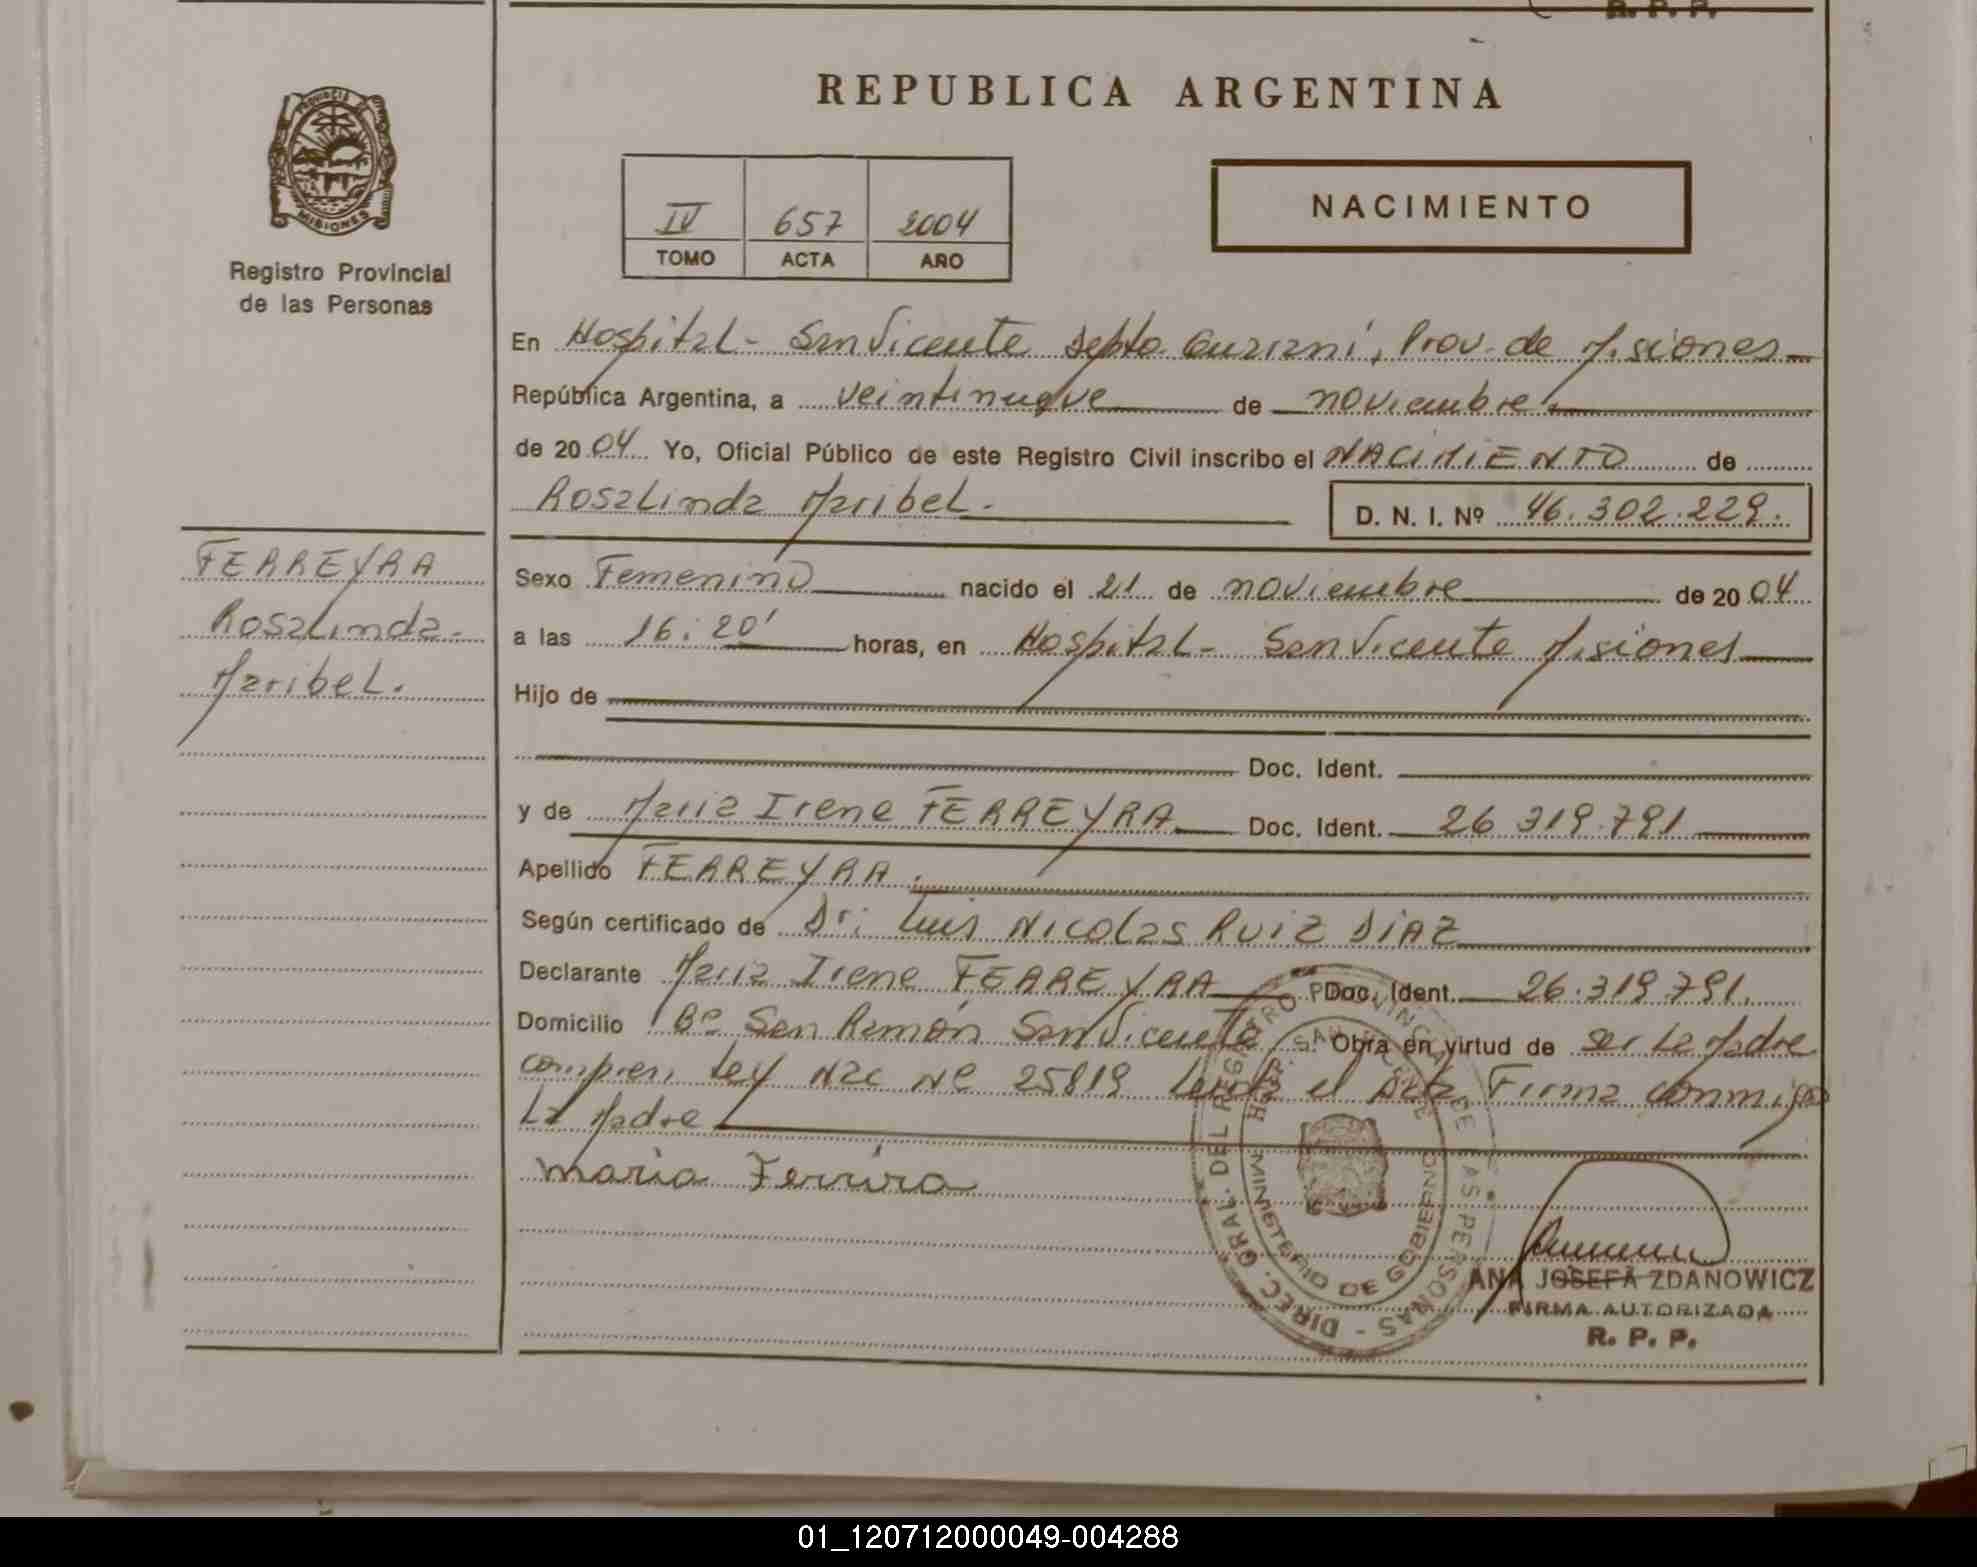 R. P. P.
REPUBLICA ARGENTINA
PROVINCIA DE
MISIONES
Registro Provincial
de las Personas
IV 657 2004
TOMO ACTA AÑO
NACIMIENTO
En Hospital - San Vicente Depto Guarani, Prov. de Misiones
República Argentina, a veintinueve de noviembre
de 2004 Yo, Oficial Público de este Registro Civil inscribo el NACIMIENTO de
Rosalinda Maribel. D. N. I. Nº 46.302.229.
FERREYRA
Rosalinda
Maribel.
Sexo Femenino nacido el 21 de noviembre de 2004
a las 16:20' horas, en Hospital - San Vicente Misiones
Hijo de
Doc. Ident.
y de Maria Irene FERREYRA Doc. Ident. 26.319.791
Apellido FERREYRA.
Según certificado de Dr: Luis Nicolas Ruiz DIAZ
Declarante Maria Irene FERREYRA Doc. Ident. 26.319.791.
Domicilio Bº San Ramón San Vicente Obra en virtud de ser la Madre
compren. Ley Nac Nº 25819 Leida el Acta Firma conmigo
La Madre
Maria Ferrira
DIREC. GRAL. DEL REGISTRO PROVINCIAL DE LAS PERSONAS -
MINISTERIO DE GOBIERNO
ANA JOSEFA ZDANOWICZ
FIRMA AUTORIZADA
R. P. P.
01_120712000049-004288